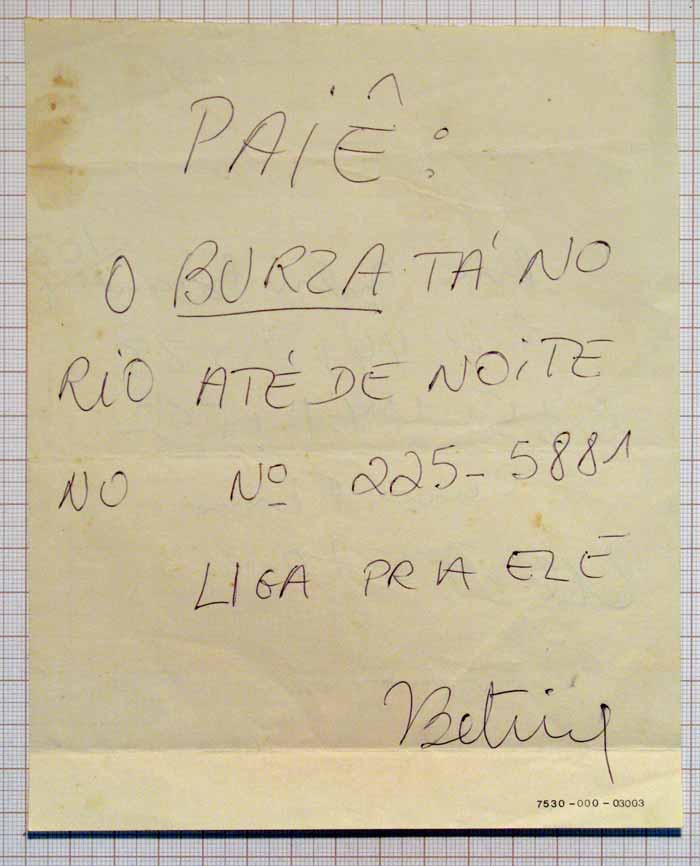 PAIÊ:
O BURZA TÁ NO
RIO ATÉ DE NOITE
NO Nº 225-5881
LIGA PRA ELE
7530-000-03003